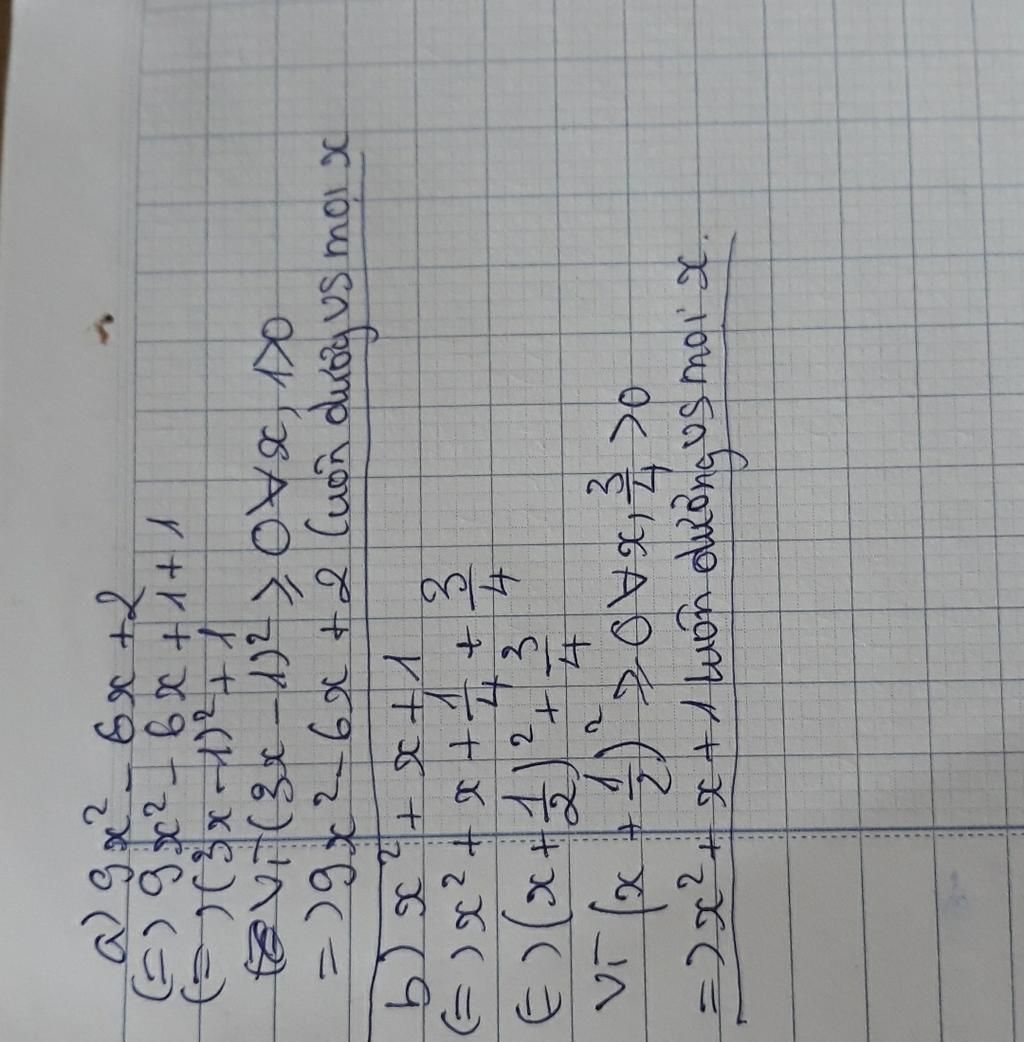 a) 9x² - 6x + 2
(=) 9x² - 6x + 1 + 1
(=) (3x - 1)² + 1
VT (3x - 1)² ⩾ 0 ∀ x, 1>0
=) 9x² - 6x + 2 luôn dương vs mọi x
b) x² + x + 1
(=) x² + x + 1/4 + 3/4
(=) (x + 1/2)² + 3/4
VT (x + 1/2)² ⩾ 0 ∀ x, 3/4 >0
=) x² + x + 1 luôn dương vs mọi x.